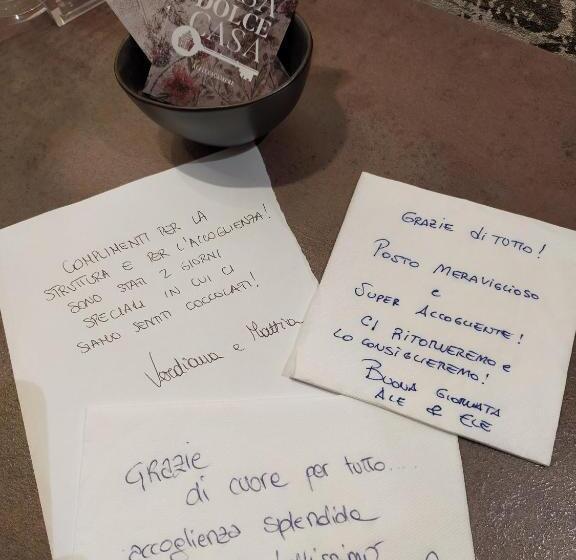 DOLCE
CASA
COMPLIMENTI PER LA
STRUTTURA E PER L'ACCOGLIENZA!
SONO STATI 2 GIORNI
SPECIALI IN CUI CI
SIAMO SENTITI COCCOLATI!
Verdiana e Mattia
GRAZIE di TUTTO!
POSTO MERAVIGLIOSO
e
SUPER ACCOGLIENTE!
CI RITORNEREMO e
LO CONSIGLIEREMO!
BUONA GIORNATA
ALE & ELE
GRAZIE
di cuore per tutto....
accoglienza splendida